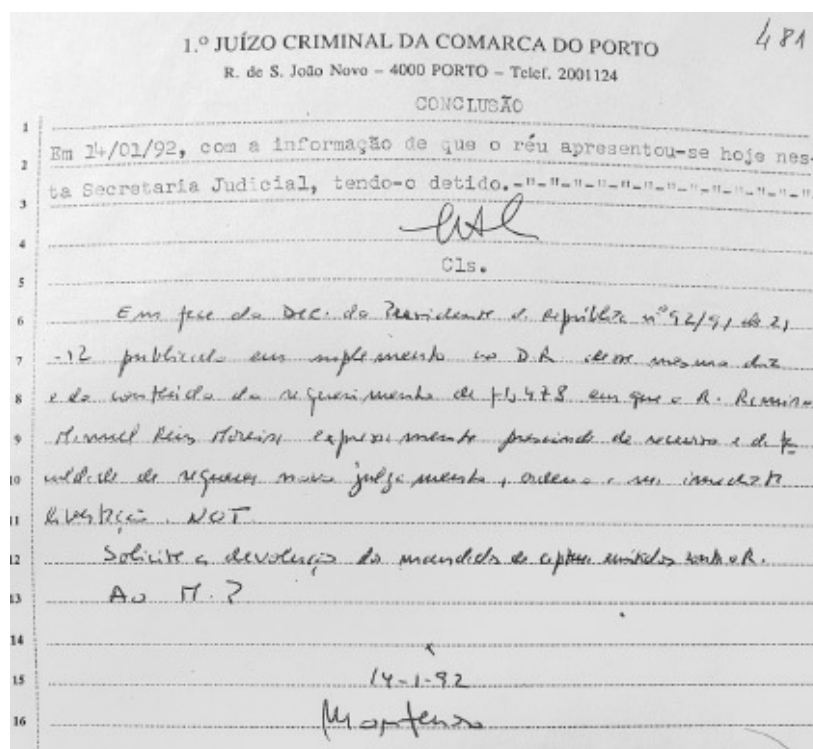 481
1.º JUÍZO CRIMINAL DA COMARCA DO PORTO
R. de S. João Novo – 4000 PORTO – Telef. 2001124
CONCLUSÃO
1
Em 14/01/92, com a informação de que o réu apresentou-se hoje nes-
2
ta Secretaria Judicial, tendo-o detido.-"-"-"-"-"-"-"-"-"-"-"
3
4
Cls.
5
6 Em face do Dec. do Presidente da República nº 92/91 de 21
7 -12 publicado em suplemento no D.R. desse mesmo dia
8 e do conteúdo do requerimento de fls 478 em que o R.
9 Manuel Reis Moreira expressamente prescinde de recurso e da
10 de requerer novo julgamento, ordeno a sua imediata
11 libertação. NOT.
12 Solicite a devolução dos mandados de captura emitidos contra o R.
13 Ao M. P
14
15 14-1-92
16